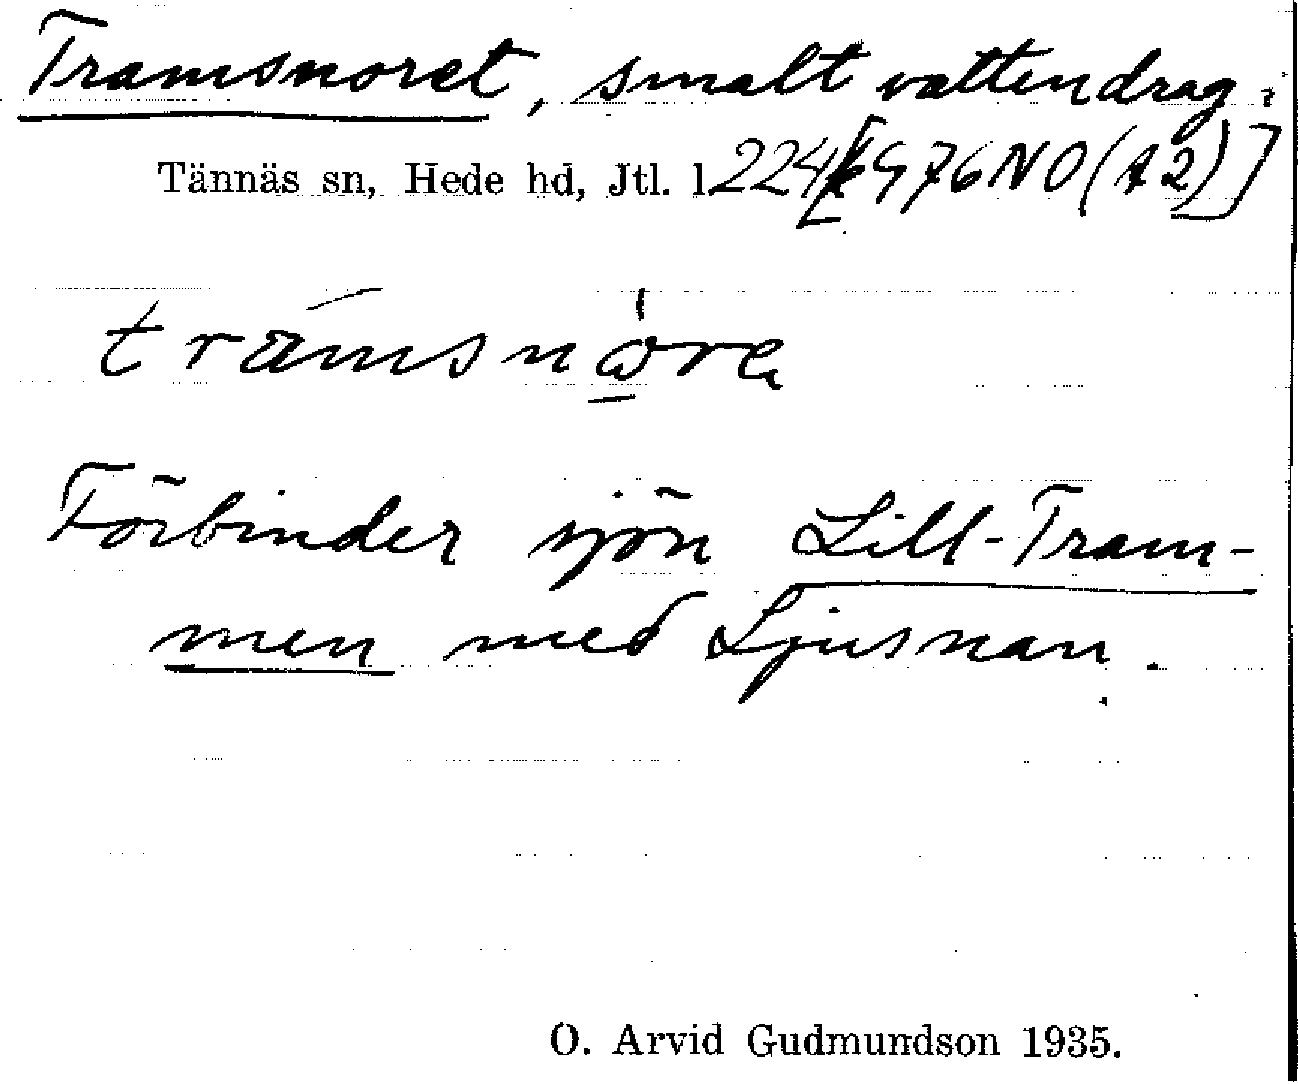 Tramsnoret, smalt vattendrag.
Tännäs sn, Hede hd, Jtl. l. 224 [k G76NO (A2)]
Förbinder sjön Lill-Tram-
men med Ljusnan.
O. Arvid Gudmundson 1935.